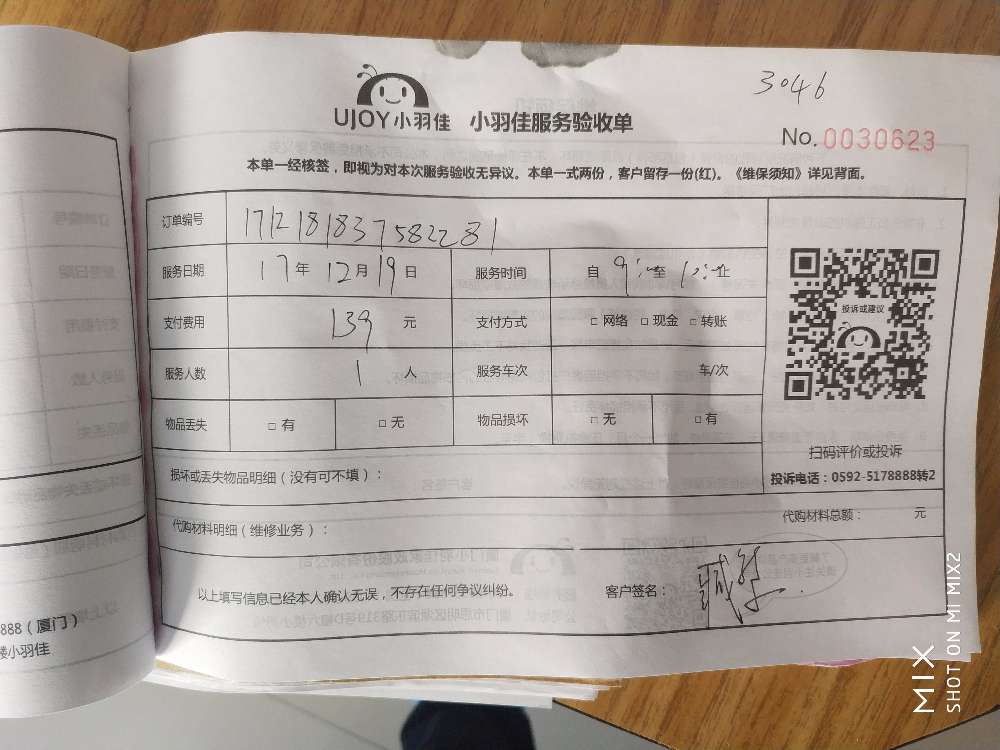 3046
UJOY小羽佳 小羽佳服务验收单
No.0030623
本单一经核签，即视为对本次服务验收无异议。本单一式两份，客户留存一份(红)。《维保须知》详见背面。
订单编号 1712181837582281
服务日期 17年12月19日 服务时间 自 9:- 至 10:- 止
支付费用 139 元 支付方式 □ 网络 □ 现金 □ 转账
服务人数 1 人 服务车次 车/次
物品丢失 □ 有 □ 无 物品损坏 □ 无 □ 有
投诉或建议
扫码评价或投诉
投诉电话：0592-5178888转2
损坏或丢失物品明细（没有可不填）：
代购材料明细（维修业务）： 代购材料总额： 元
以上填写信息已经本人确认无误，不存在任何争议纠纷。 客户签名：
888（厦门）
楼小羽佳
MIX
SHOT ON MI MIX2